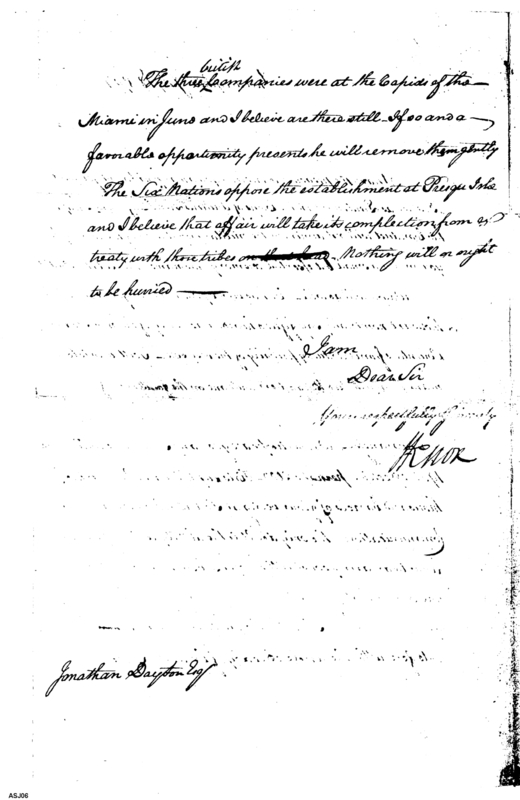 british
The three Companies were at the Rapids of the
Miami in June and I believe are there still. If so and a
favorable opportunity presents he will remove them gently
The Six Nations oppose the establishment at Presqu Isle
and I believe that affair will take its complection from a
treaty with those tribes on that head. Nothing will or ought
to be hurried
I am
Dear Sir
Yours respectfully
HKnox
Jonathan Dayton Esq
ASJ06